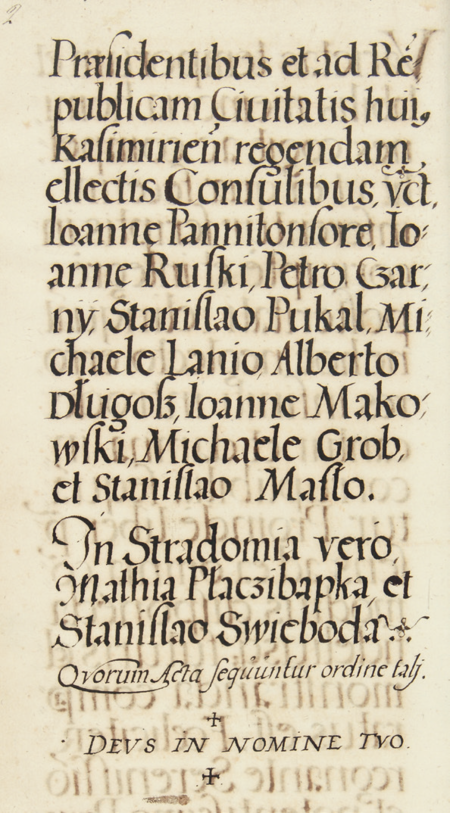 2
Præsidentibus et ad Ré/
publicam Ciuitatis hui9
Kasimirień regendam,
ellectis Consulibus, v̓ct,
Ioanne Pannitonsore, Io:
anne Ruski, Petro Czar:
ny, Stanislao Pukal, Mi:
chaele Lanio, Alberto
Długosß, Ioanne Mąko:
wski, Michaele Grob,
et Stanislao Masło.
In Stradomia vero,
Mathia Płaczibapka, et
Stanislao Swieboda
Qvorum Acta sequuntur ordine talj.
+
DEVS IN NOMINE TVO.
+